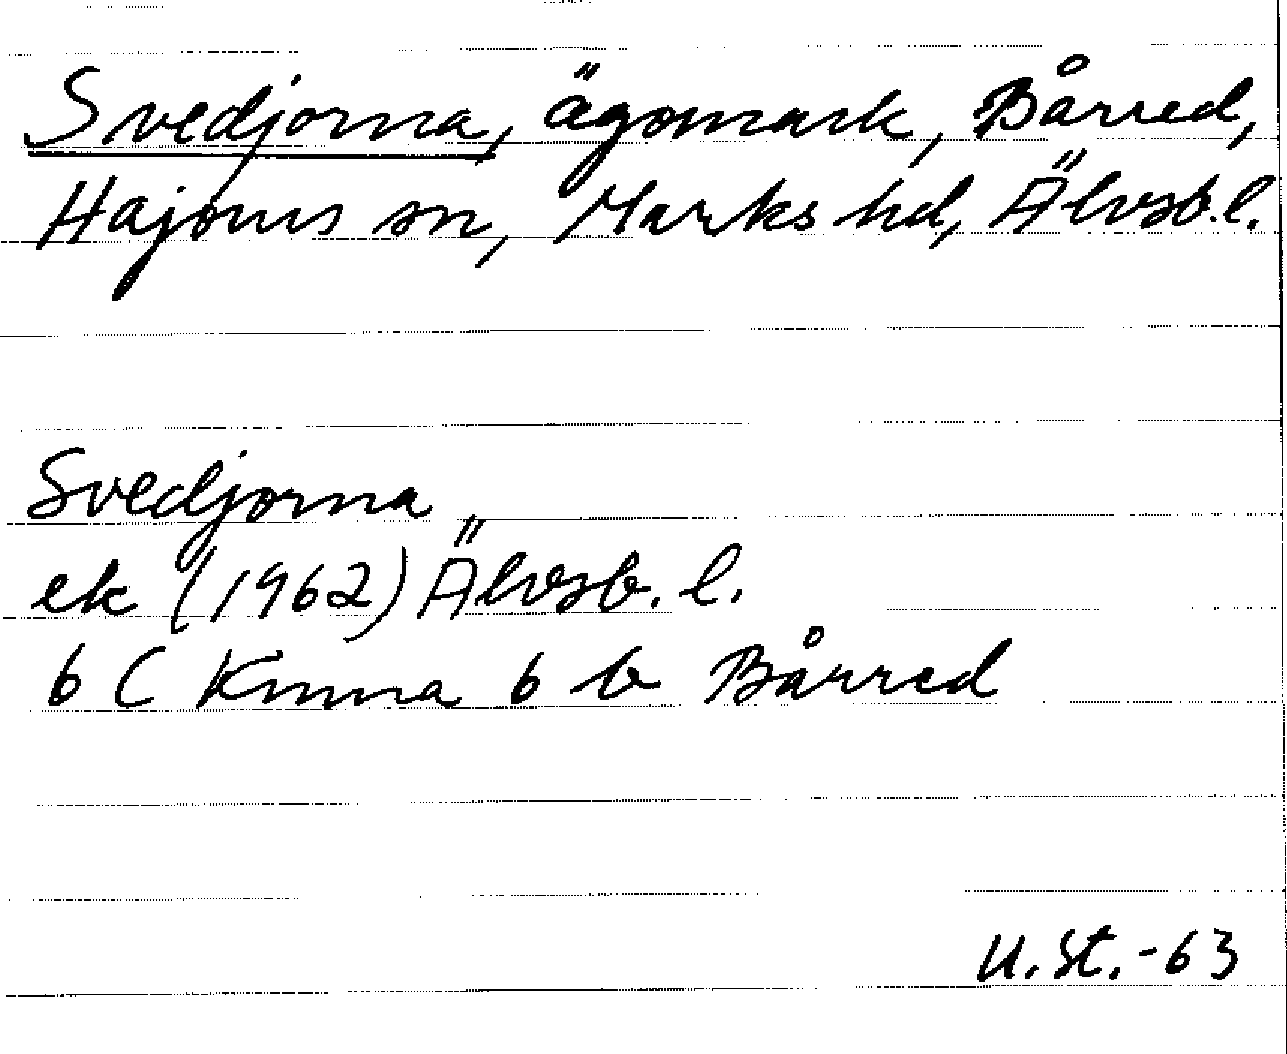 Svedjorna, ägomark, Bårred,
Hajoms sn, Marks hd, Älvsb. l.
Svedjorna
ek (1962) Älvsb. l.
6 C Kinna 6 b Bårred
U. St. -63